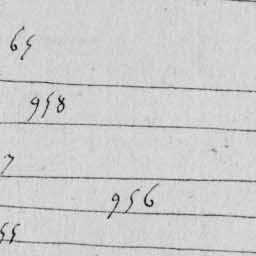 65
958
7
956
55